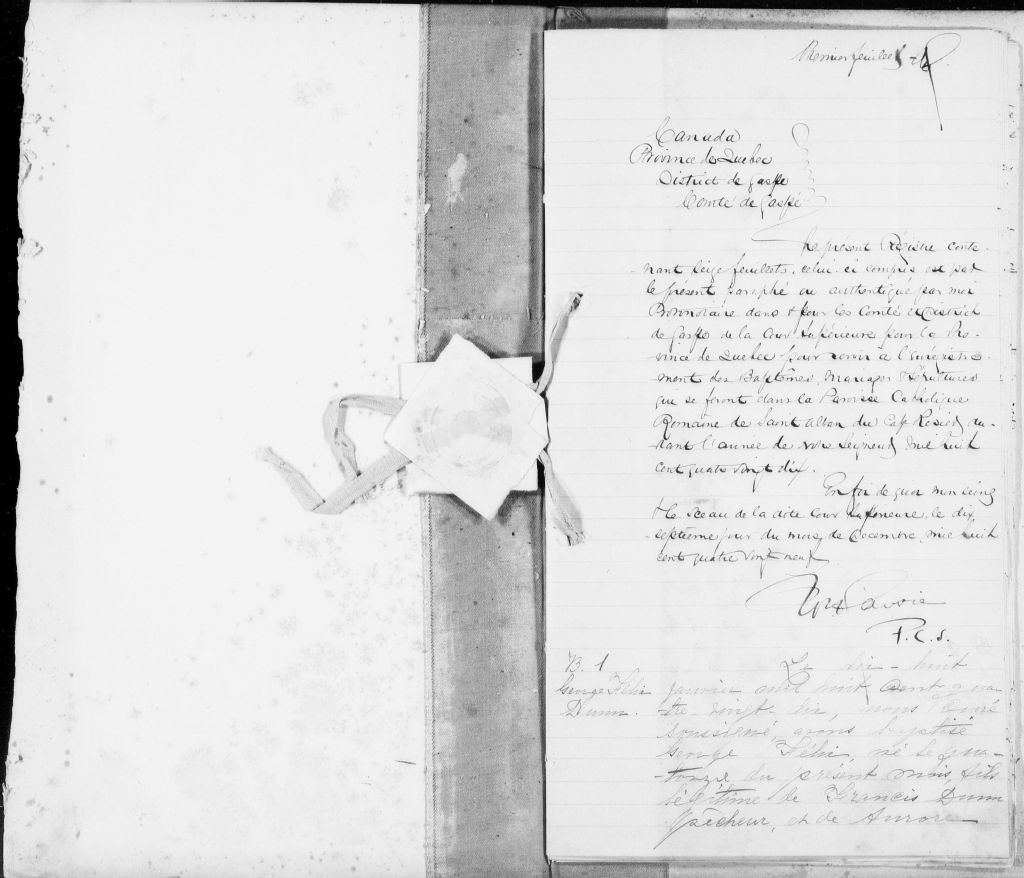 Premier feuillet
Canada
Province de Quebec
District de Gaspe
Comté de Gaspé
Le présent Régistre conte-
nant seize feuillets, celui-ci compris est par
le présent paraphé ou authentiqué par moi
Protonotaire dans & pour les Comté & District
de Gaspe de la Cour Supérieure pour la Pro-
vince de Quebec pour servir à l'enrégistre-
ment des Baptêmes, Mariages & Sépultures
qui se feront dans la Paroisse Catholique
Romaine de Saint Alban du Cap Rosier du-
rant l'année de notre Seigneur mil huit
cent quatre vingt dix.
En foi de quoi mon seing
& le Sceau de la dite Cour Supérieure, le dix
septieme jour du mois de Decembre, mil huit
cent quatre vingt neuf
Lavoie
P.C.S.
B. 1
George Félix
Dunn.
Le dix-huit
janvier mil huit cent qua-
-tre-vingt dix, nous Curé
soussigné, avons baptisé
George Félix, né le qua-
-torze du présent mois fils
légitime de Francis Dunn
pêcheur, et de Aurore